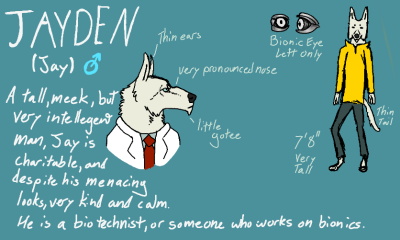 JAYDEN
(Jay) ♂
A tall, meek, but
very intellegent
man, Jay is
charitable, and
despite his menacing
looks, very kind and calm.
He is a biotechnist, or someone who works on bionics.
Thin ears
very pronounced nose
little
gotee
Bionic Eye
Left Only
7'8"
Very
Tall
Thin
Tail